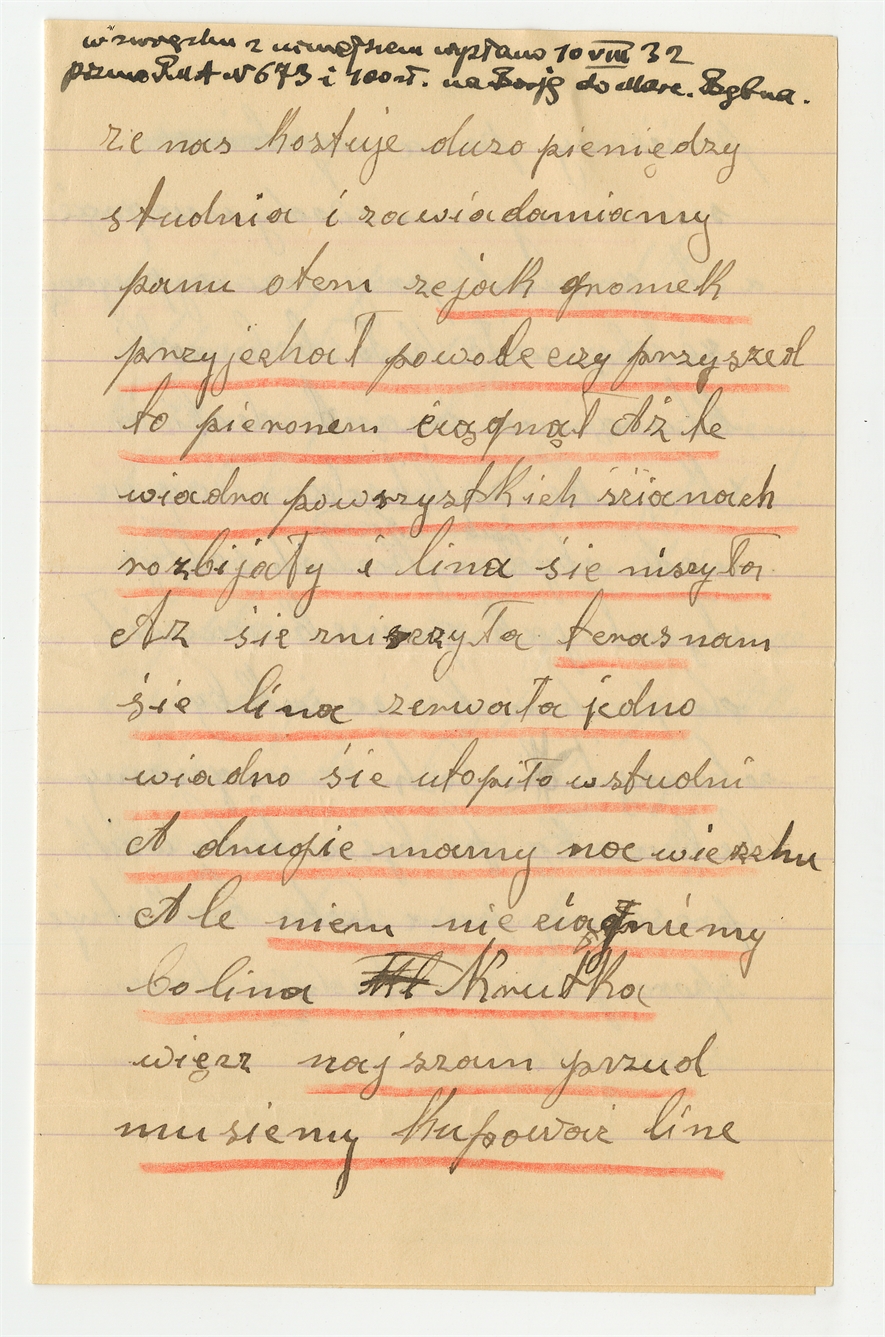 w związku z niniejszem wysłano 10 VIII 32
pismo PMA N 673 i 100 zł. na Borję do Marc. Bąbna.
że nas kostuje duzo pieniędzy
studnia i zawiadamiamy
panu otem ze jak gromek
przyjechał powode czy przyszed
to pieronem ciągnął Aż te
wiadra powszystkich śćianach
rozbijały i lina śie niszyła
Az śie zniszczyła teras nam
śie lina zerwała jedno
wiadro śie utopiło wstudni
A drugie mamy na wierzchu
Ale niem nie ciągniemy
bo lina Krutka
więcz naj szam przud
musiemy kupować line